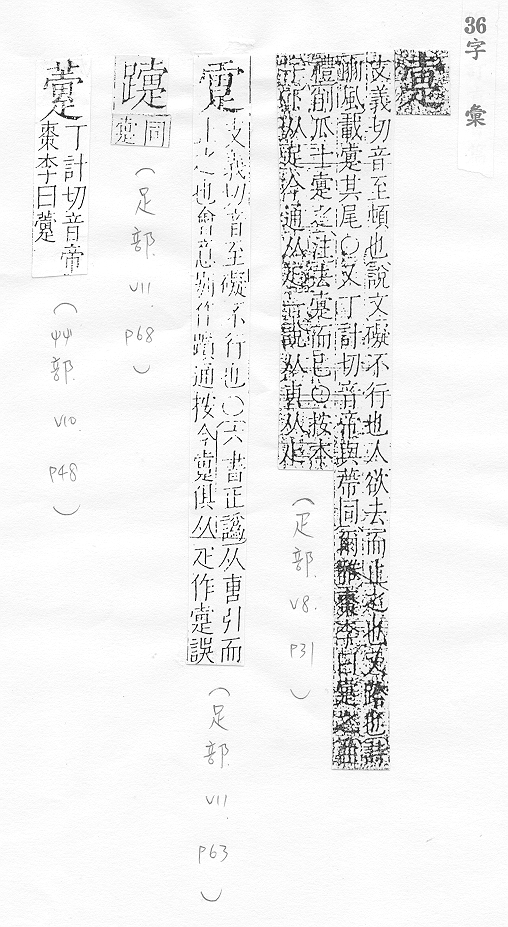 36字彙
疐
支義切音至頓也說文礙不行也人欲去而止之也又踣也詩
風載疐其尾○又丁計切音帝與蔕同爾雅棗李曰疐之
禮削瓜士疐之注去疐而已○按本
从疋今通从疋一說从叀从止
(疋部. V8. P31)
疐
支義切音至礙不行也○六書正譌从叀引而
止之也會意別作躓通按今疐俱从疋作疐誤
(足部. V11. P63)
同疐
(足部. V11. P68)
丁計切音帝
棗李曰
(艸部. V10 P48)